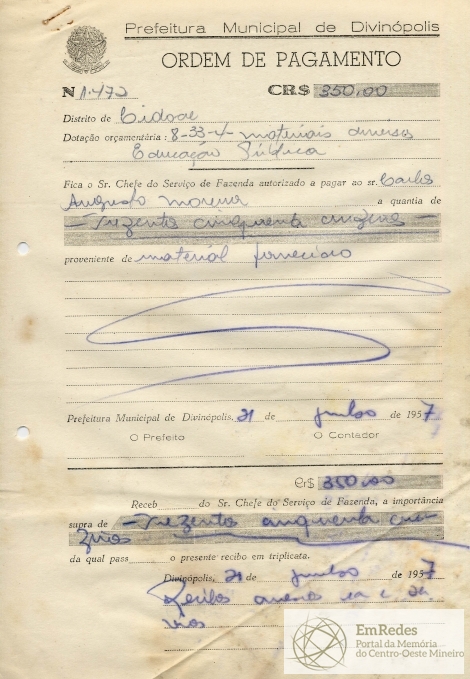 Prefeitura Municipal de Divinópolis
ORDEM DE PAGAMENTO
N 1.472 CR$ 350,00
Distrito de Cidade
Dotação orçamentária : 8-33-4- materiais diversos
Educação Pública
Fica o Sr. Chefe do Serviço de Fazenda autorizado a pagar ao sr. Carlos
Augusto Moreira a quantia de
— Trezentos cinquenta cruzeiros —
proveniente de material fornecido
Prefeitura Municipal de Divinópolis, 21 de junho de 1957
O Prefeito O Contador
Cr$ 350,00
Receb do Sr. Chefe do Serviço de Fazenda, a importância
supra de — Trezentos cinquenta cru-
zeiros
da qual pass o presente recibo em triplicata.
Divinópolis, 21 de junho de 1957
EmRedes
Portal da Memória
do Centro-Oeste Mineiro